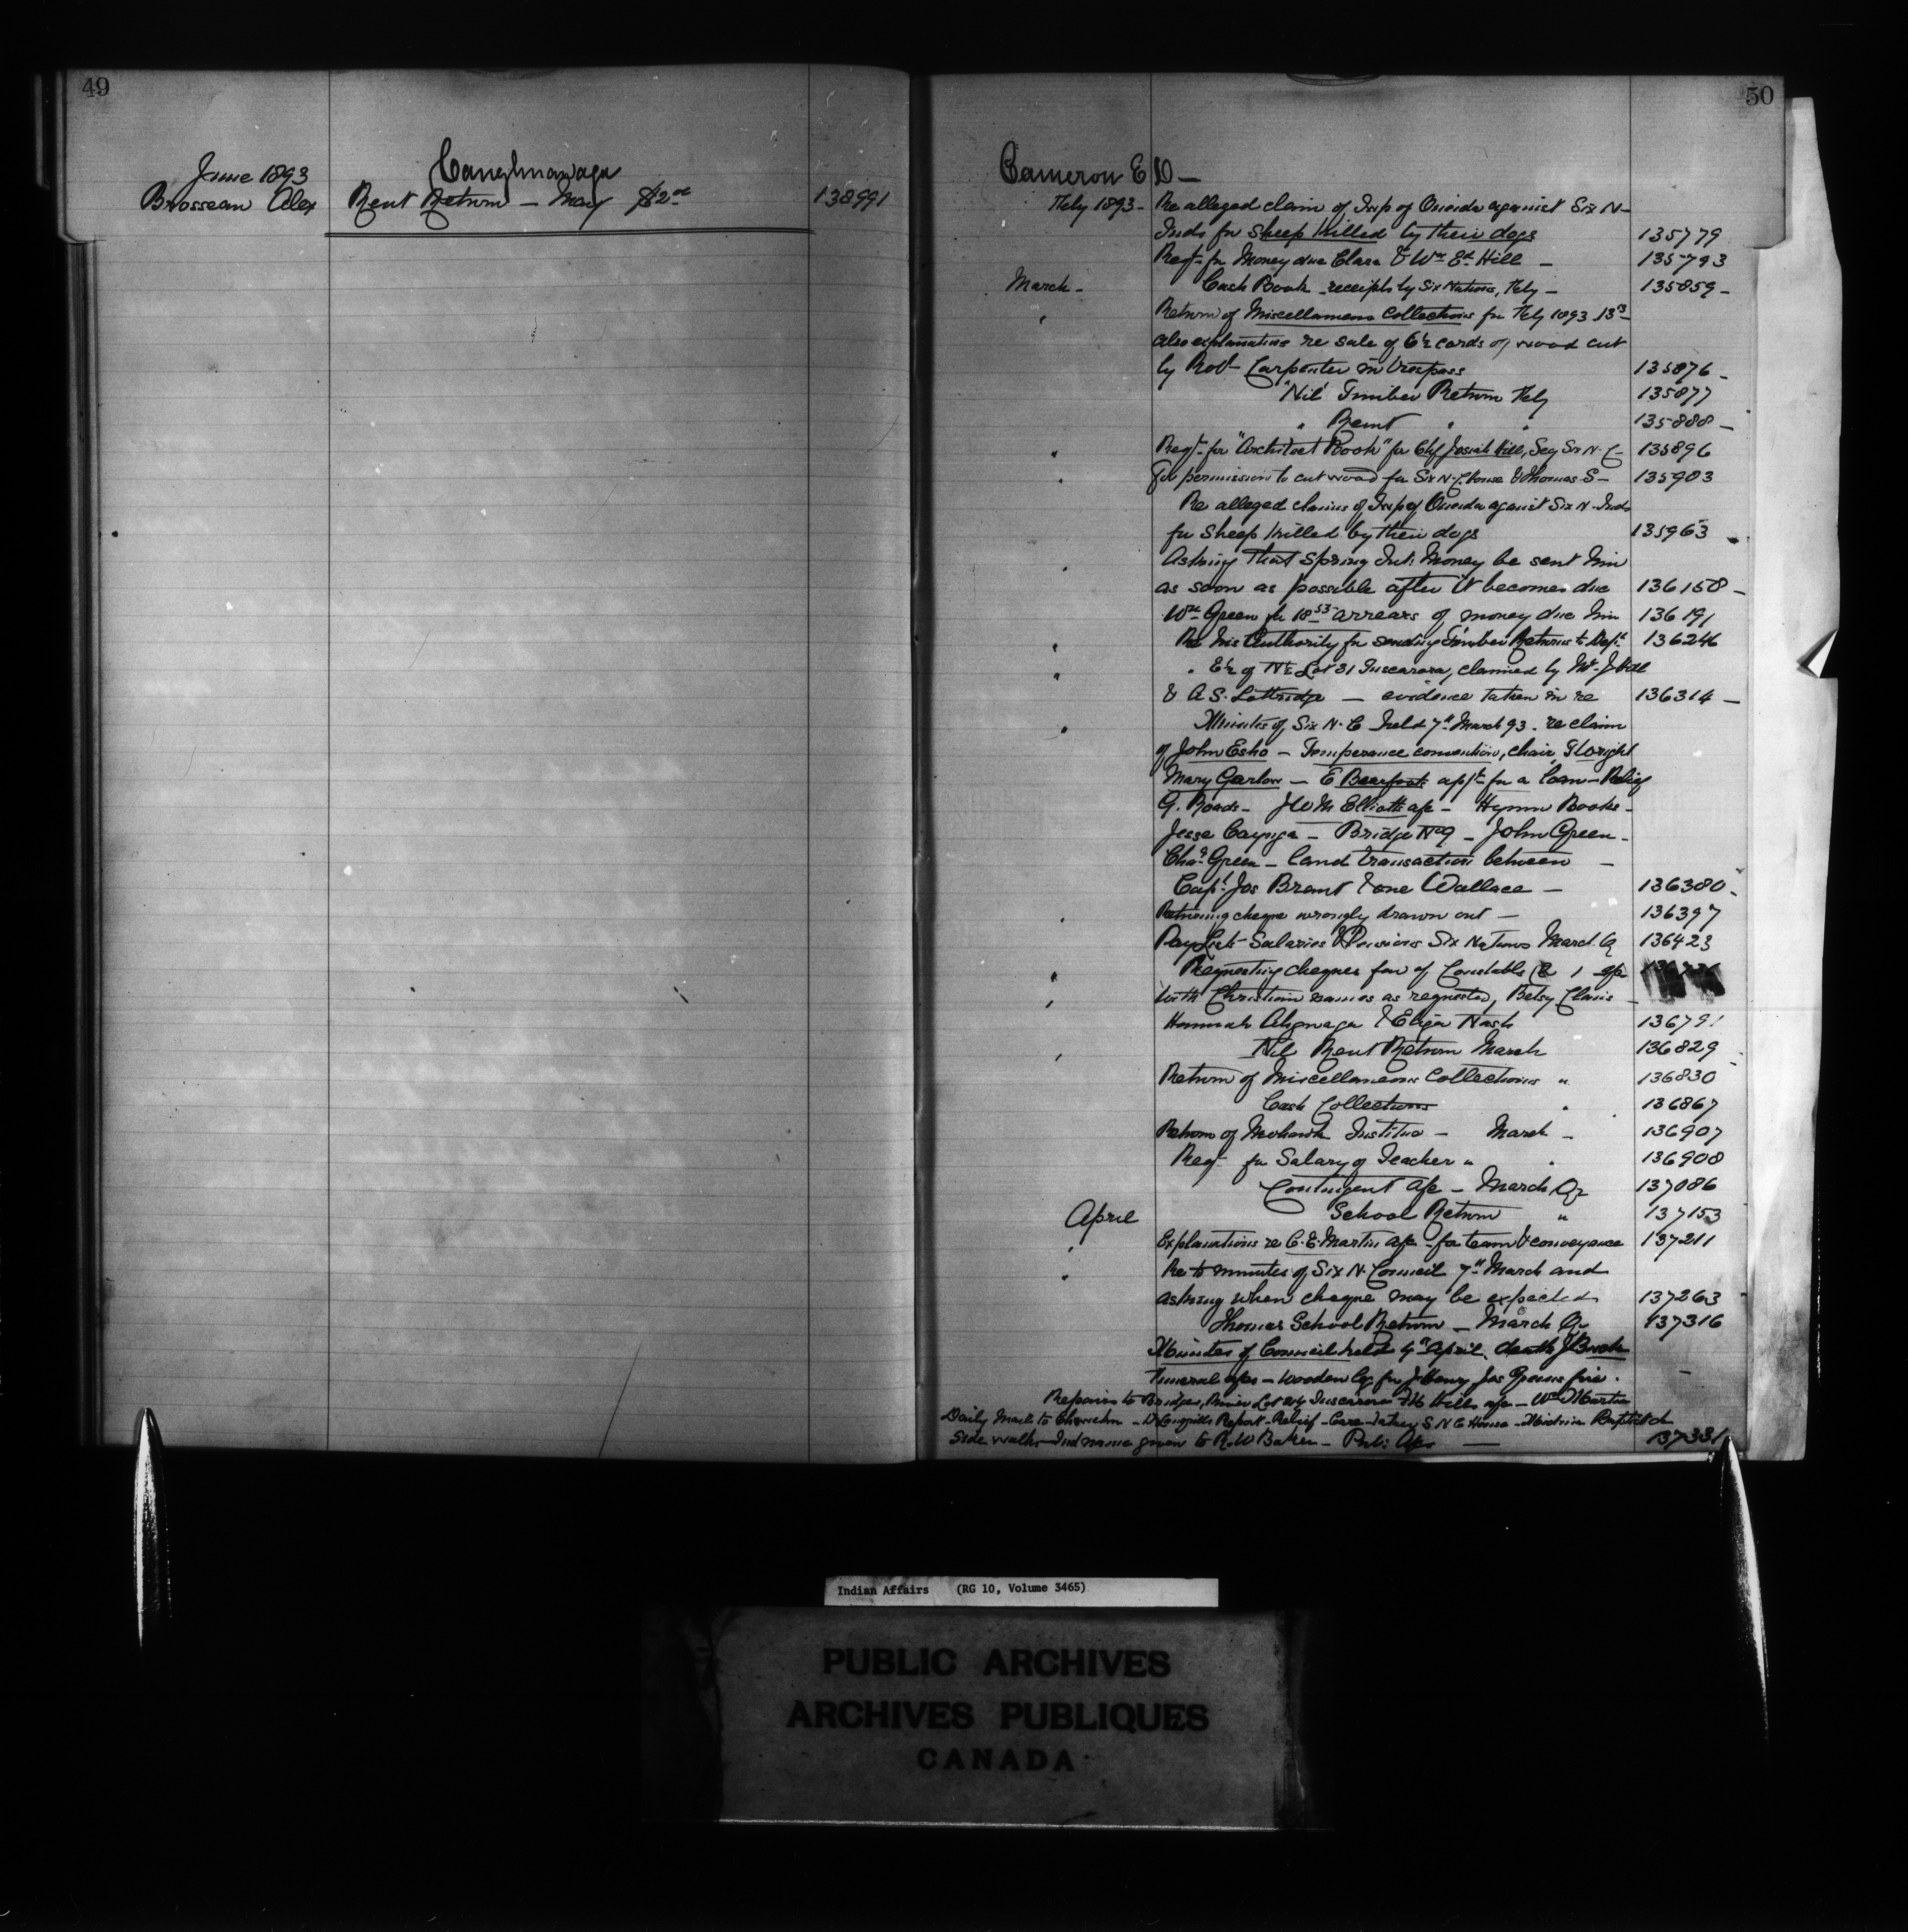 49
Caughnawaga
June 1893
Brosseau Alex Rent Return — May $2.00 138991
50
Cameron E D —
Feby 1893 - Re alleged claim of Twp of Oneida against Six N-
Inds for sheep killed by their dogs 135779
Reqt for Money due Clara & Wm Ed. Hill — 135793
March - Cash Book receipts by Six Nations, Feby — 135859 -
" Return of Miscellaneous Collections for Feby 1893
also explanations re sale of 6½ cords of wood cut
by Robt Carpenter in trespass 135876 -
"Nil" Timber Return Feby 135877
" Rent " " 135888 -
" Reqt for "Architect Book" for Chf Josiah Hill, Secy Six N. C- 135896
" For permission to cut wood for Six N. C. House & Thomas S- 135903
Re alleged claims of Twp of Oneida against Six N. Inds
for sheep killed by their dogs 135963
" Asking that Spring Int. Money be sent him
as soon as possible after it becomes due 136158 -
Wm Green for 18 53 arrears of money due him 136191
" Re his Authority for sending Timber Returns to Dept. 136246
" " E½ of N½ Lot 31 Tuscarora, claimed by Mr J Hill
& A S. Lottridge — evidence taken in re 136314 —
" Minutes of Six N. C held 7th March 93. re claim
of John Esho — Temperance convention, chair,
Mary Garlow — E Bearfoot appn for a loan — Relief
G. Bonds - J W M Elliotts a/c - Hymn Books -
Jesse Cayuga — Bridge No 9 — John Green -
Chas. Green — land transaction between —
Capt. Jos Brant & one Wallace — 136380 -
" Returning cheque wrongly drawn out — 136397
Pay Lists Salaries & Pensions Six Nations March Q 136423
" Requesting cheques fav of Constables
" with Christian names as requested, Betsy Claus —
Hannah & Eliza Nash 136791
" Nil Rent Return March 136829
Return of Miscellaneous Collections " 136830
Cash Collections " 136867
Return of Mohawk Institue — March - 136907
Reqt for Salary of Teacher " " 136908
Contingent a/c — March Qr 137086
April School Return " 137153
" Explanations re C. E. Martin a/c - for team & conveyance 137211
" Re to minutes of Six N. Council 7th March and
asking when cheque may be expected 137263
Thomas School Return — March Qr 137316
Minutes of Council held 4th April, death J Buck
Funeral a/cs — Wooden leg for J Henry Jas Greens fire.
Repairs to Bridges, Lot 24 Tuscarora Hills a/c — Wm Martin
Daily Mail to - Dr Report - Relief - Care-taker S N C House - Baptist Ch
Side walks - Ind name given to R. W Baker — 137331
Indian Affairs (RG 10, Volume 3465)
PUBLIC ARCHIVES
ARCHIVES PUBLIQUES
CANADA